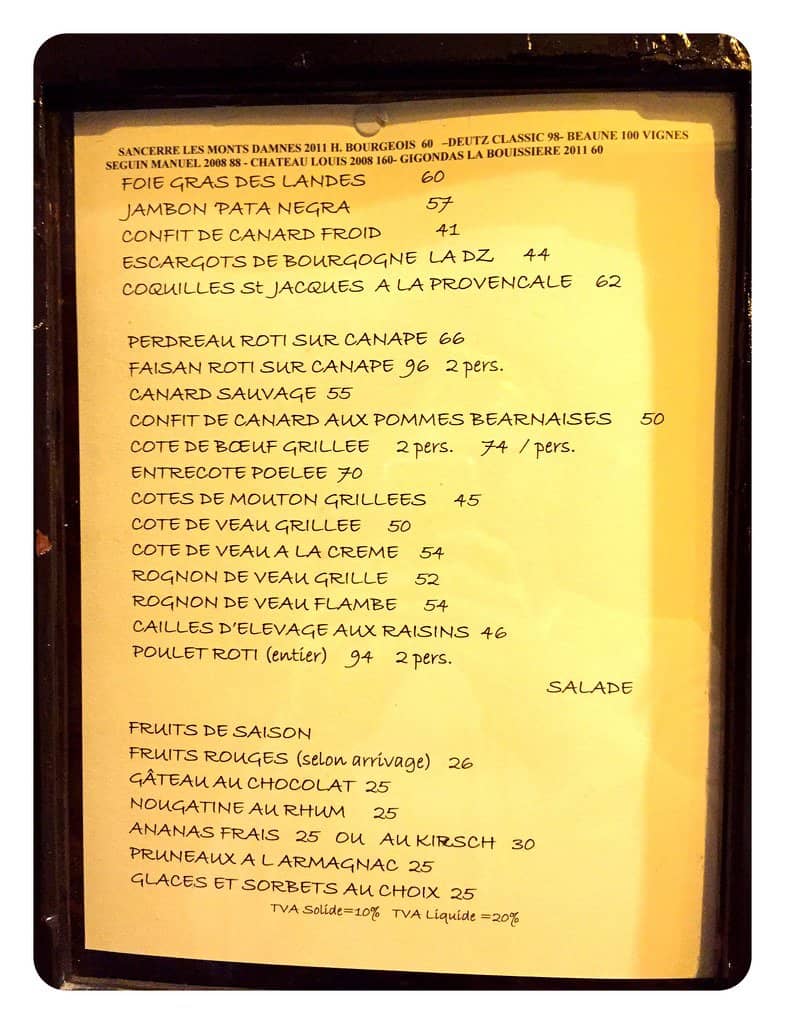 SANCERRE LES MONTS DAMNES 2011 H. BOURGEOIS 60 –DEUTZ CLASSIC 98- BEAUNE 100 VIGNES
SEGUIN MANUEL 2008 88 - CHATEAU LOUIS 2008 160- GIGONDAS LA BOUISSIERE 2011 60
FOIE GRAS DES LANDES 60
JAMBON 'PATA NEGRA 57
CONFIT DE CANARD FROID 41
ESCARGOTS DE BOURGOGNE LA DZ 44
COQUILLES St JACQUES A LA PROVENCALE 62
PERDREAU ROTI SUR CANAPE 66
FAISAN ROTI SUR CANAPE 96 2 pers.
CANARD SAUVAGE 55
CONFIT DE CANARD AUX POMMES BEARNAISES 50
COTE DE BŒUF GRILLEE 2 pers. 74 / pers.
ENTRECOTE POELEE 70
COTES DE MOUTON GRILLEES 45
COTE DE VEAU GRILLEE 50
COTE DE VEAU A LA CREME 54
ROGNON DE VEAU GRILLE 52
ROGNON DE VEAU FLAMBE 54
CAILLES D'ELEVAGE AUX RAISINS 46
POULET ROTI (entier) 94 2 pers.
SALADE
FRUITS DE SAISON
FRUITS ROUGES (selon arrivage) 26
GÂTEAU AU CHOCOLAT 25
NOUGATINE AU RHUM 25
ANANAS FRAIS 25 OU AU KIRSCH 30
PRUNEAUX A L ARMAGNAC 25
GLACES ET SORBETS AU CHOIX 25
TVA Solide=10% TVA Liquide =20%